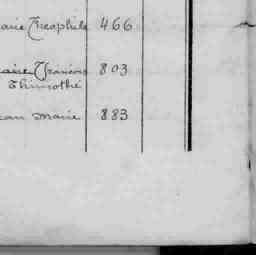 aire Théophile 466
aire François 803
Thimothé
ean Marie 883